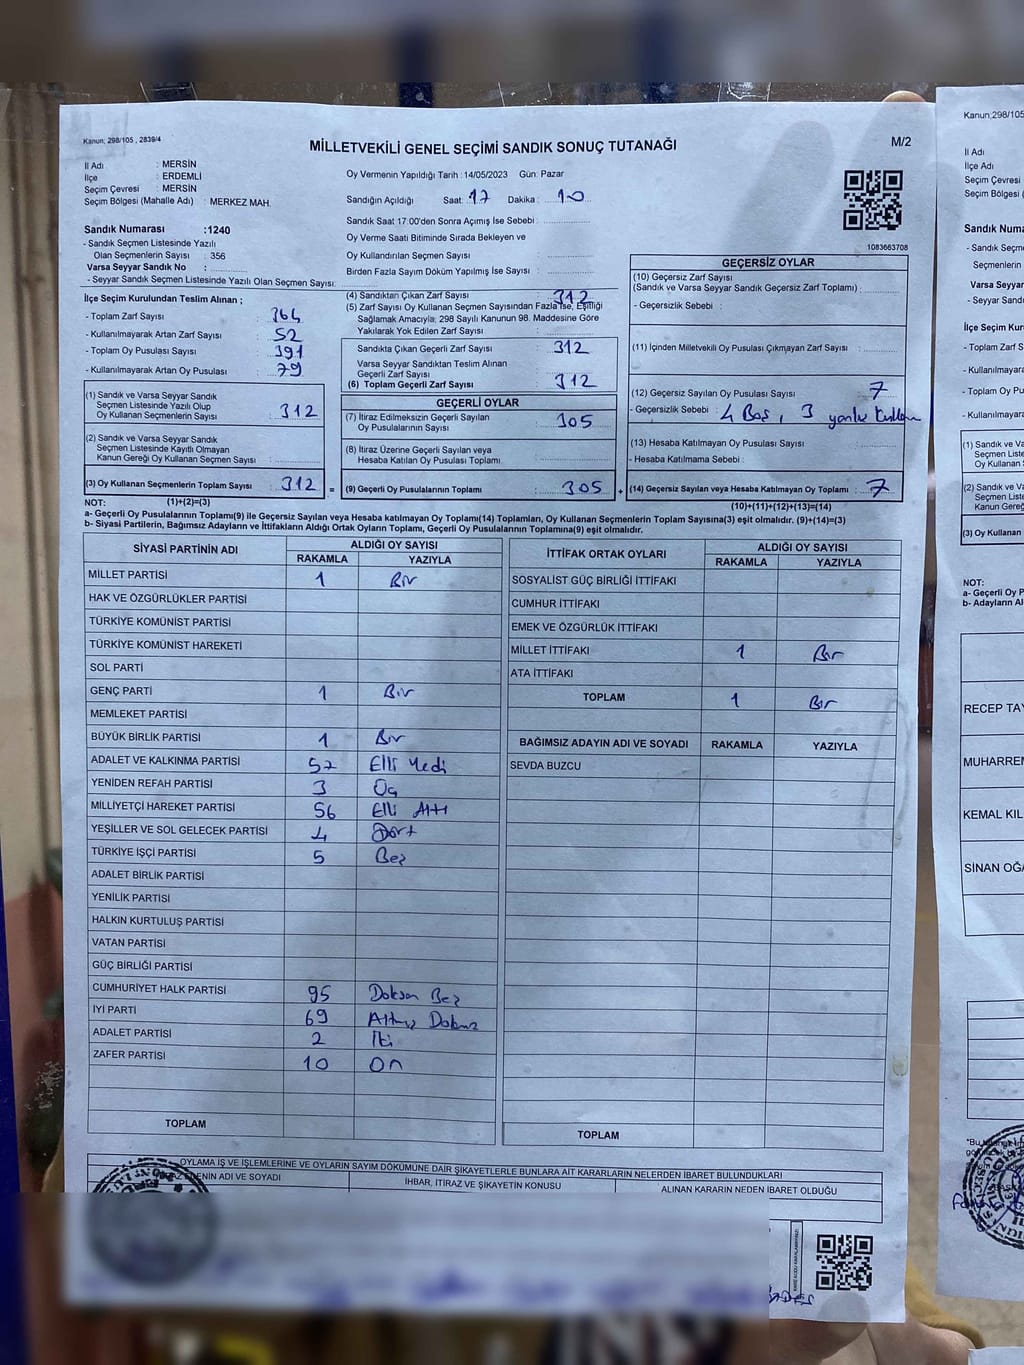 Kanun: 298/105 , 2839/4
MİLLETVEKİLİ GENEL SEÇİMİ SANDIK SONUÇ TUTANAĞI
M/2
İl Adı : MERSİN
İlçe : ERDEMLİ
Seçim Çevresi : MERSİN
Seçim Bölgesi (Mahalle Adı) : MERKEZ MAH.
Sandık Numarası :1240
- Sandık Seçmen Listesinde Yazılı
Olan Seçmenlerin Sayısı : 356
Varsa Seyyar Sandık No :
- Seyyar Sandık Seçmen Listesinde Yazılı Olan Seçmen Sayısı:
Oy Vermenin Yapıldığı Tarih :14/05/2023 Gün: Pazar
Sandığın Açıldığı Saat: 17 Dakika : 10
Sandık Saat 17:00'den Sonra Açımış İse Sebebi :
Oy Verme Saati Bitiminde Sırada Bekleyen ve
Oy Kullandırılan Seçmen Sayısı :
Birden Fazla Sayım Döküm Yapılmış İse Sayısı :
1083663708
İlçe Seçim Kurulundan Teslim Alınan ;
- Toplam Zarf Sayısı : 364
- Kullanılmayarak Artan Zarf Sayısı : 52
- Toplam Oy Pusulası Sayısı : 391
- Kullanılmayarak Artan Oy Pusulası : 79
(1) Sandık ve Varsa Seyyar Sandık
Seçmen Listesinde Yazılı Olup
Oy Kullanan Seçmenlerin Sayısı : 312
(2) Sandık ve Varsa Seyyar Sandık
Seçmen Listesinde Kayıtlı Olmayan
Kanun Gereği Oy Kullanan Seçmen Sayısı :
(3) Oy Kullanan Seçmenlerin Toplam Sayısı : 312
(4) Sandıktan Çıkan Zarf Sayısı : 312
(5) Zarf Sayısı Oy Kullanan Seçmen Sayısından Fazla İse, Eşitliği
Sağlamak Amacıyla; 298 Sayılı Kanunun 98. Maddesine Göre
Yakılarak Yok Edilen Zarf Sayısı :
Sandıkta Çıkan Geçerli Zarf Sayısı : 312
Varsa Seyyar Sandıktan Teslim Alınan
Geçerli Zarf Sayısı :
(6) Toplam Geçerli Zarf Sayısı : 312
GEÇERLİ OYLAR
(7) İtiraz Edilmeksizin Geçerli Sayılan
Oy Pusulalarının Sayısı : 305
(8) İtiraz Üzerine Geçerli Sayılan veya
Hesaba Katılan Oy Pusulası Toplamı :
= (9) Geçerli Oy Pusulalarının Toplamı : 305
GEÇERSİZ OYLAR
(10) Geçersiz Zarf Sayısı
(Sandık ve Varsa Seyyar Sandık Geçersiz Zarf Toplamı) :
- Geçersizlik Sebebi :
(11) İçinden Milletvekili Oy Pusulası Çıkmayan Zarf Sayısı :
(12) Geçersiz Sayılan Oy Pusulası Sayısı : 7
- Geçersizlik Sebebi : 4 Boş, 3 yanlış kullanım
(13) Hesaba Katılmayan Oy Pusulası Sayısı :
- Hesaba Katılmama Sebebi :
+ (14) Geçersiz Sayılan veya Hesaba Katılmayan Oy Toplamı : 7
NOT: (1)+(2)=(3)
(10)+(11)+(12)+(13)=(14)
a- Geçerli Oy Pusulalarının Toplamı(9) ile Geçersiz Sayılan veya Hesaba katılmayan Oy Toplamı(14) Toplamları, Oy Kullanan Seçmenlerin Toplam Sayısına(3) eşit olmalıdır. (9)+(14)=(3)
b- Siyasi Partilerin, Bağımsız Adayların ve İttifakların Aldığı Ortak Oyların Toplamı, Geçerli Oy Pusulalarının Toplamına(9) eşit olmalıdır.
SİYASİ PARTİNİN ADI ALDIĞI OY SAYISI
RAKAMLA YAZIYLA
MİLLET PARTİSİ 1 Bir
HAK VE ÖZGÜRLÜKLER PARTİSİ
TÜRKİYE KOMÜNİST PARTİSİ
TÜRKİYE KOMÜNİST HAREKETİ
SOL PARTİ
GENÇ PARTİ 1 Bir
MEMLEKET PARTİSİ
BÜYÜK BİRLİK PARTİSİ 1 Bir
ADALET VE KALKINMA PARTİSİ 57 Elli Yedi
YENİDEN REFAH PARTİSİ 3 Üç
MİLLİYETÇİ HAREKET PARTİSİ 56 Elli Altı
YEŞİLLER VE SOL GELECEK PARTİSİ 4 Dört
TÜRKİYE İŞÇİ PARTİSİ 5 Beş
ADALET BİRLİK PARTİSİ
YENİLİK PARTİSİ
HALKIN KURTULUŞ PARTİSİ
VATAN PARTİSİ
GÜÇ BİRLİĞİ PARTİSİ
CUMHURİYET HALK PARTİSİ 95 Doksan Beş
İYİ PARTİ 69 Altmış Dokuz
ADALET PARTİSİ 2 İki
ZAFER PARTİSİ 10 On
TOPLAM
İTTİFAK ORTAK OYLARI ALDIĞI OY SAYISI
RAKAMLA YAZIYLA
SOSYALİST GÜÇ BİRLİĞİ İTTİFAKI
CUMHUR İTTİFAKI
EMEK VE ÖZGÜRLÜK İTTİFAKI
MİLLET İTTİFAKI 1 Bir
ATA İTTİFAKI
TOPLAM 1 Bir
BAĞIMSIZ ADAYIN ADI VE SOYADI RAKAMLA YAZIYLA
SEVDA BUZCU
TOPLAM
OYLAMA İŞ VE İŞLEMLERİNE VE OYLARIN SAYIM DÖKÜMÜNE DAİR ŞİKAYETLERLE BUNLARA AİT KARARLARIN NELERDEN İBARET BULUNDUKLARI
EDENİN ADI VE SOYADI İHBAR, İTİRAZ VE ŞİKAYETİN KONUSU ALINAN KARARIN NEDEN İBARET OLDUĞU
Kanun:298/105
İl Adı
İlçe Adı
Seçim Çevresi
Seçim Bölgesi (
Sandık Numa
- Sandık Seçm
Seçmenlerin
Varsa Seyyar
- Seyyar Sandı
İlçe Seçim Kur
- Toplam Zarf S
- Kullanılmayara
- Toplam Oy Pu
- Kullanılmayara
(1) Sandık ve Va
Seçmen Liste
Oy Kullanan S
(2) Sandık ve Va
Seçmen Liste
Kanun Gereğ
(3) Oy Kullanan
NOT:
a- Geçerli Oy P
b- Adayların Al
RECEP TAY
MUHARREM
KEMAL KIL
SİNAN OĞA